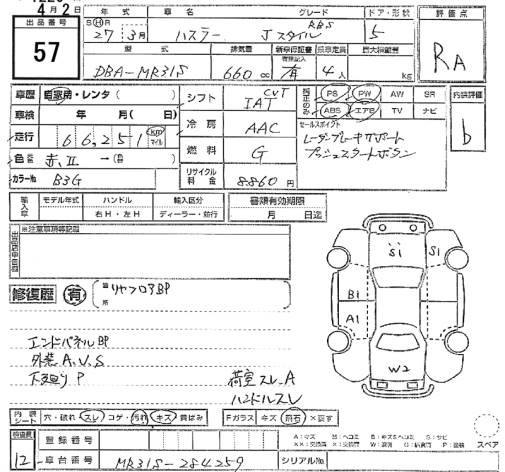 4月2日
出品番号
57
年式 車名 グレード ドア・形状 評価点
S H 27年3月 ハスラー Jスタイル RBS 5 RA
型式 排気量 新車保証書 乗車定員 最大積載量
DBA-MR31S 660cc 有 4人 kg
車歴 自家用・レンタ( ) シフト CVT IAT PS PW AW SR 内装評価
車検 年 月( 日) 冷房 AAC ABS エアB TV ナビ b
走行 66,251 km マイル セールスポイント
色 赤II →(色 ) 燃料 G レーダーブレーキサポート
カラーNo B3G リサイクル料金 8860円 プッシュスタートボタン
輸入車 モデル年式 ハンドル 輸入区分 書類有効期限
右H・左H ディーラー・並行 月 日迄
※注意事項等記載
修復歴 有 箇所 リヤフロアBP
Si S1
B1
A1
W2
エンドパネルBP
外装A.U.S
下廻りP
荷室スレ.A
ハンドルスレ
内装 シート 穴・破れ スレ コゲ・汚れ キズ 黄ばみ Fガラス キズ 飛石 ×要す
検査員 12 登録番号
車台番号 MR31S-284259 シリアルNo
スペア